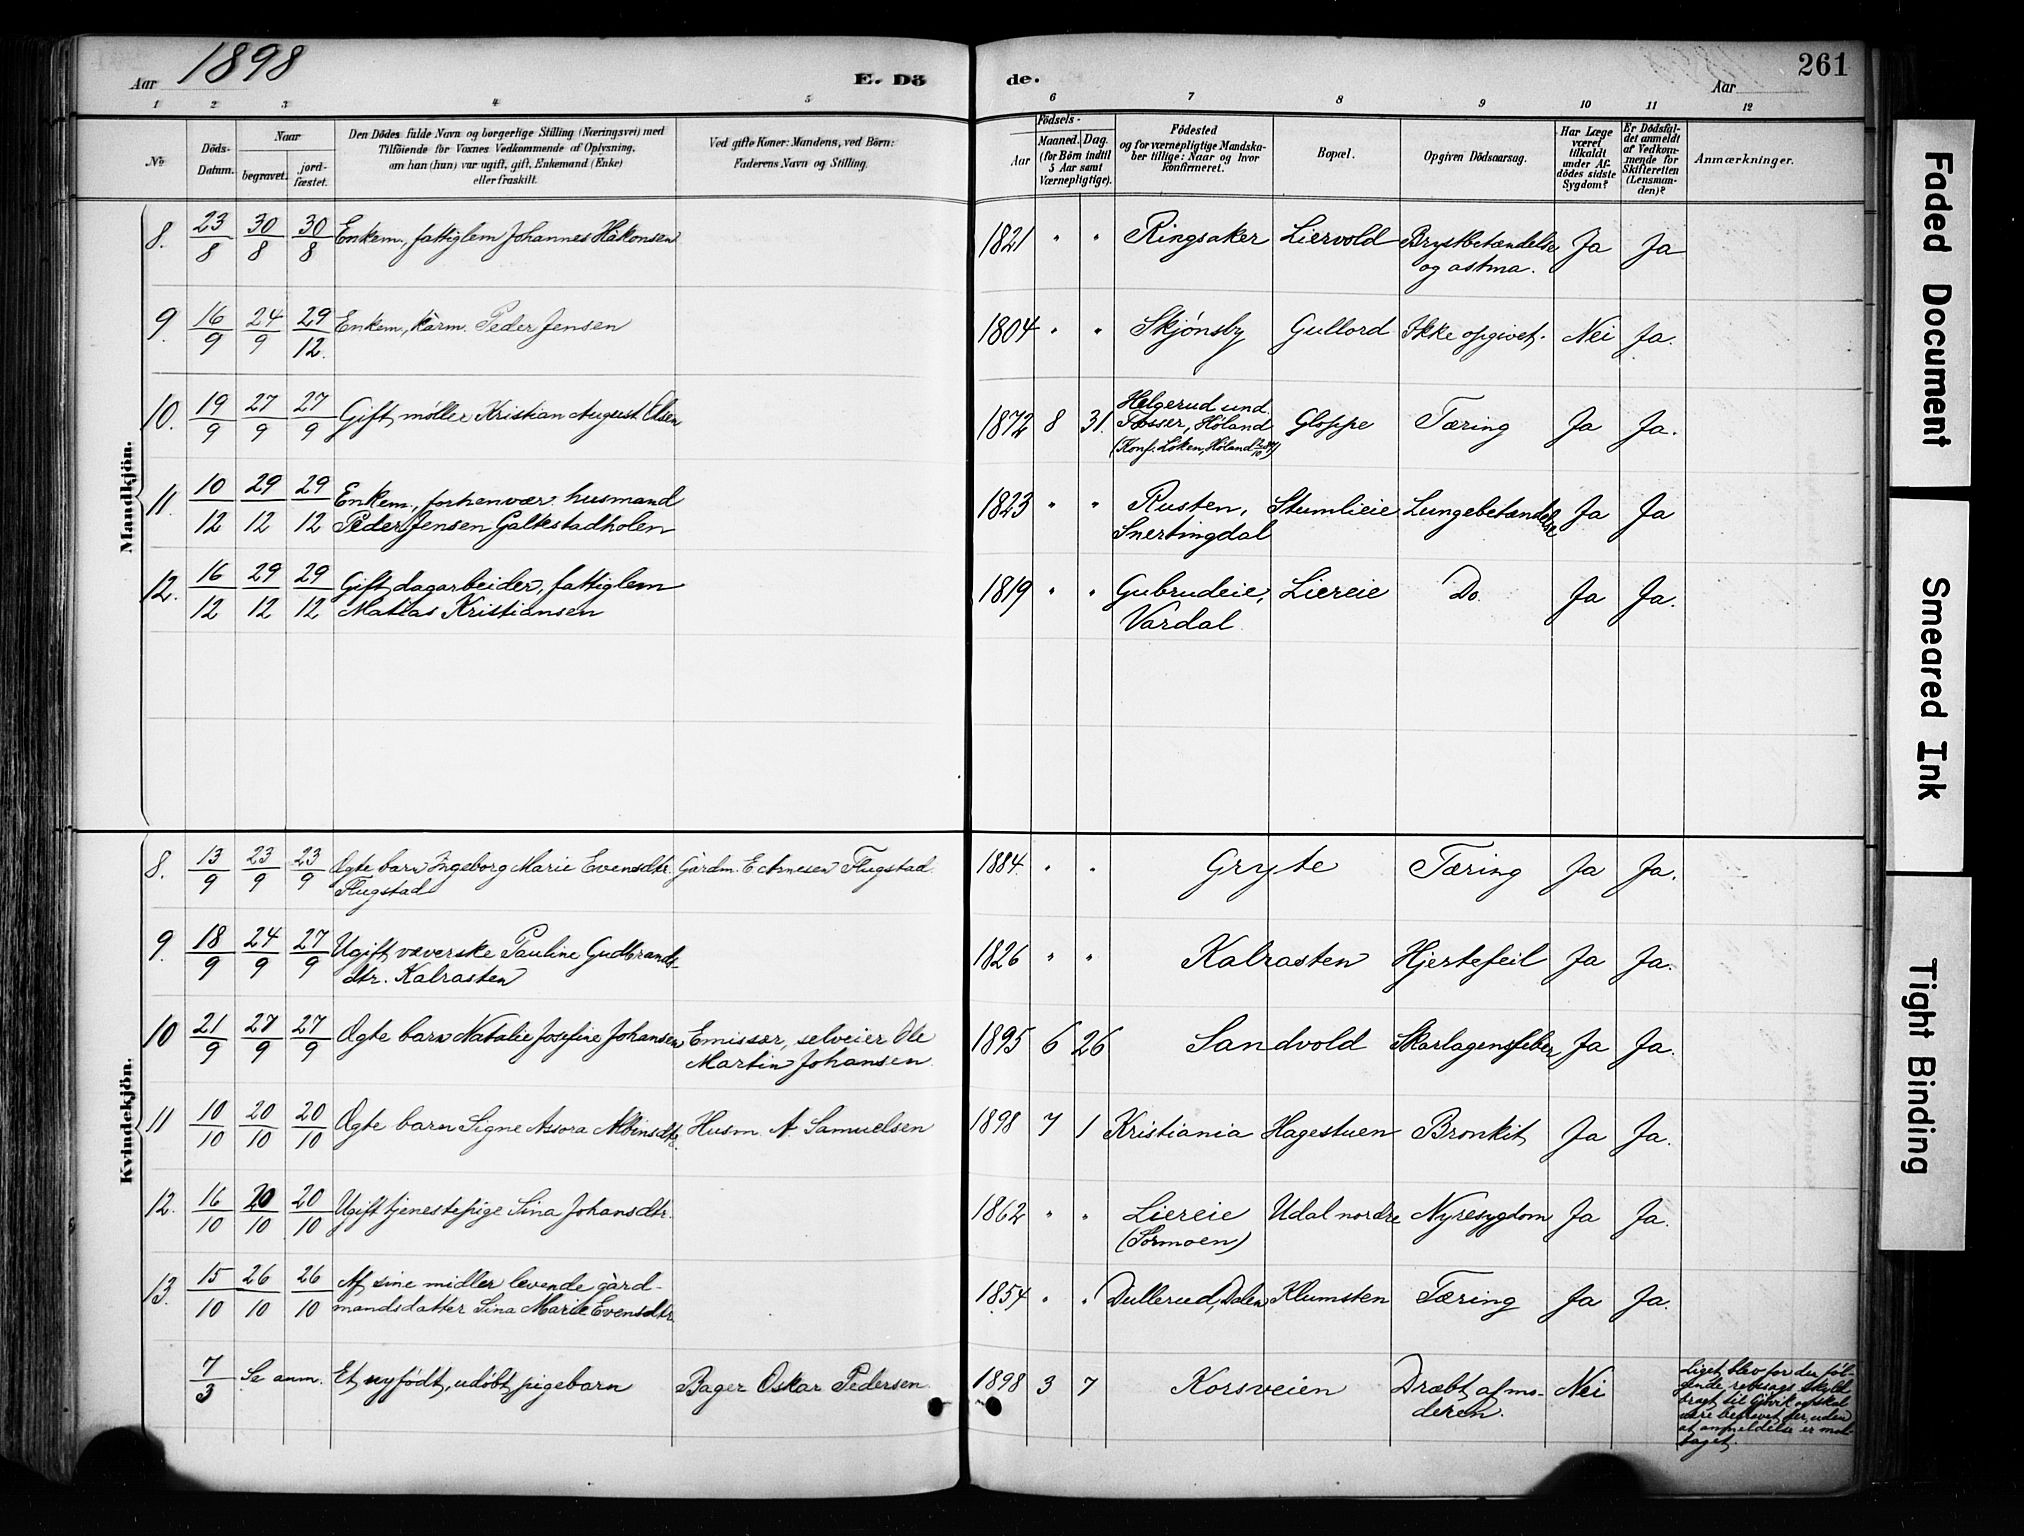 Aar 1898
E. Dö
de.
Aar
261
1 2 3 4 5 6 7 8 9 10 11 12
No.
Döds-
Datum.
Naar
begravet.
jord-
fæstet.
Den Dödes fulde Navn og borgerlige Stilling (Næringsvei) med
Tilföiende for Voxnes Vedkommende af Oplysning,
om han (hun) var ugift, gift, Enkemand (Enke)
eller fraskilt.
Ved gifte Koner: Mandens, ved Börn:
Faderens Navn og Stilling.
Födsels-
Aar
Maaned. Dag.
(for Börn indtil
5 Aar samt
Værnepligtige).
Födested
og for værnepligtige Mandska-
ber tillige: Naar og hvor
konfirmeret.
Bopæl.
Opgiven Dödsaarsag.
Har Læge
været
tilkaldt
under Af-
dödes sidste
Sygdom?
Er Dödsfal-
det anmeldt
af Vedkom-
mende for
Skifteretten
(Lensman-
den)?
Anmærkninger.
Mandkjön.
8. 23/8 30/8 30/8 Enkem., fattiglem Johannes Håkonsen 1821 " " Ringsaker Liervold Brystbetændelse Ja Ja
og astma.
9. 16/9 24/9 29/12. Enkem., kårm. Peder Jensen 1804 " " Skjønsby Gullord Ikke opgivet. Nei Ja.
10. 19/9 27/9 27/9 Gift møller Kristian August Olsen 1872 8 31. Helgerud und. Gloppe Tæring Ja Ja.
Fosser, Høland
(Konf. Løken, Høland
11. 10/12 29/12 29/12 Enkem., forhenvær. husmand 1823 " " Rusten, Stumlieie Lungebetændelse Ja Ja
Peder Jensen Galtestadholen Snertingdal
12. 16/12 29/12 29/12 Gift dagarbeider, fattiglem 1819 " " Gubrudeie, Liereie Do. Ja Ja.
Matias Kristiansen Vardal
Kvindekjön.
8. 13/9 23/9 23/9 Ægte barn Ingeborg Marie Evensdtr. Gårdm. E. Arnesen Flugstad. 1884. " " Gryte Tæring Ja Ja.
Flugstad
9. 18/9 24/9 27/9 Ugift væverske Pauline Gudbrands- 1826 " " Kalrasten Hjertefeil Ja Ja.
dtr. Kalrasten
10 21/9 27/9 27/9 Ægte barn Natalie Josefine Johansen Emissær, selveier Ole 1895 6 26 Sandvold Skarlagensfeber Ja Ja.
Martin Johansen.
11 10/10 20/10 20/10 Ægte barn Signe Assora Albinsdtr. Husm. A. Samuelsen 1898 7 1 Kristiania Hagestuen Bronkit Ja Ja.
12. 16/10 20/10 20/10 Ugift tjenestepige Lina Johansdtr. 1862 " " Liereie Udal nordre Nyresygdom Ja Ja.
(Sormoen)
13. 15/10 26/10 26/10 Af sine midler levende gård- 1854 " " Dullerud, Dalen Klumsten Tæring Ja Ja.
mandsdatter Lina Marie Evensdtr.
7/3 Se anm. Et nyfødt, udøbt pigebarn Bager Oskar Pedersen. 1898 3 7 Korsveien Dræbt af mo- Nei
deren.
Liget blev for den føl-
gende retssags skyld
bragt til Gjøvik og skal
være begravet der, uden
at anmeldelse er mod-
taget.
Faded Document
Smeared Ink
Tight Binding